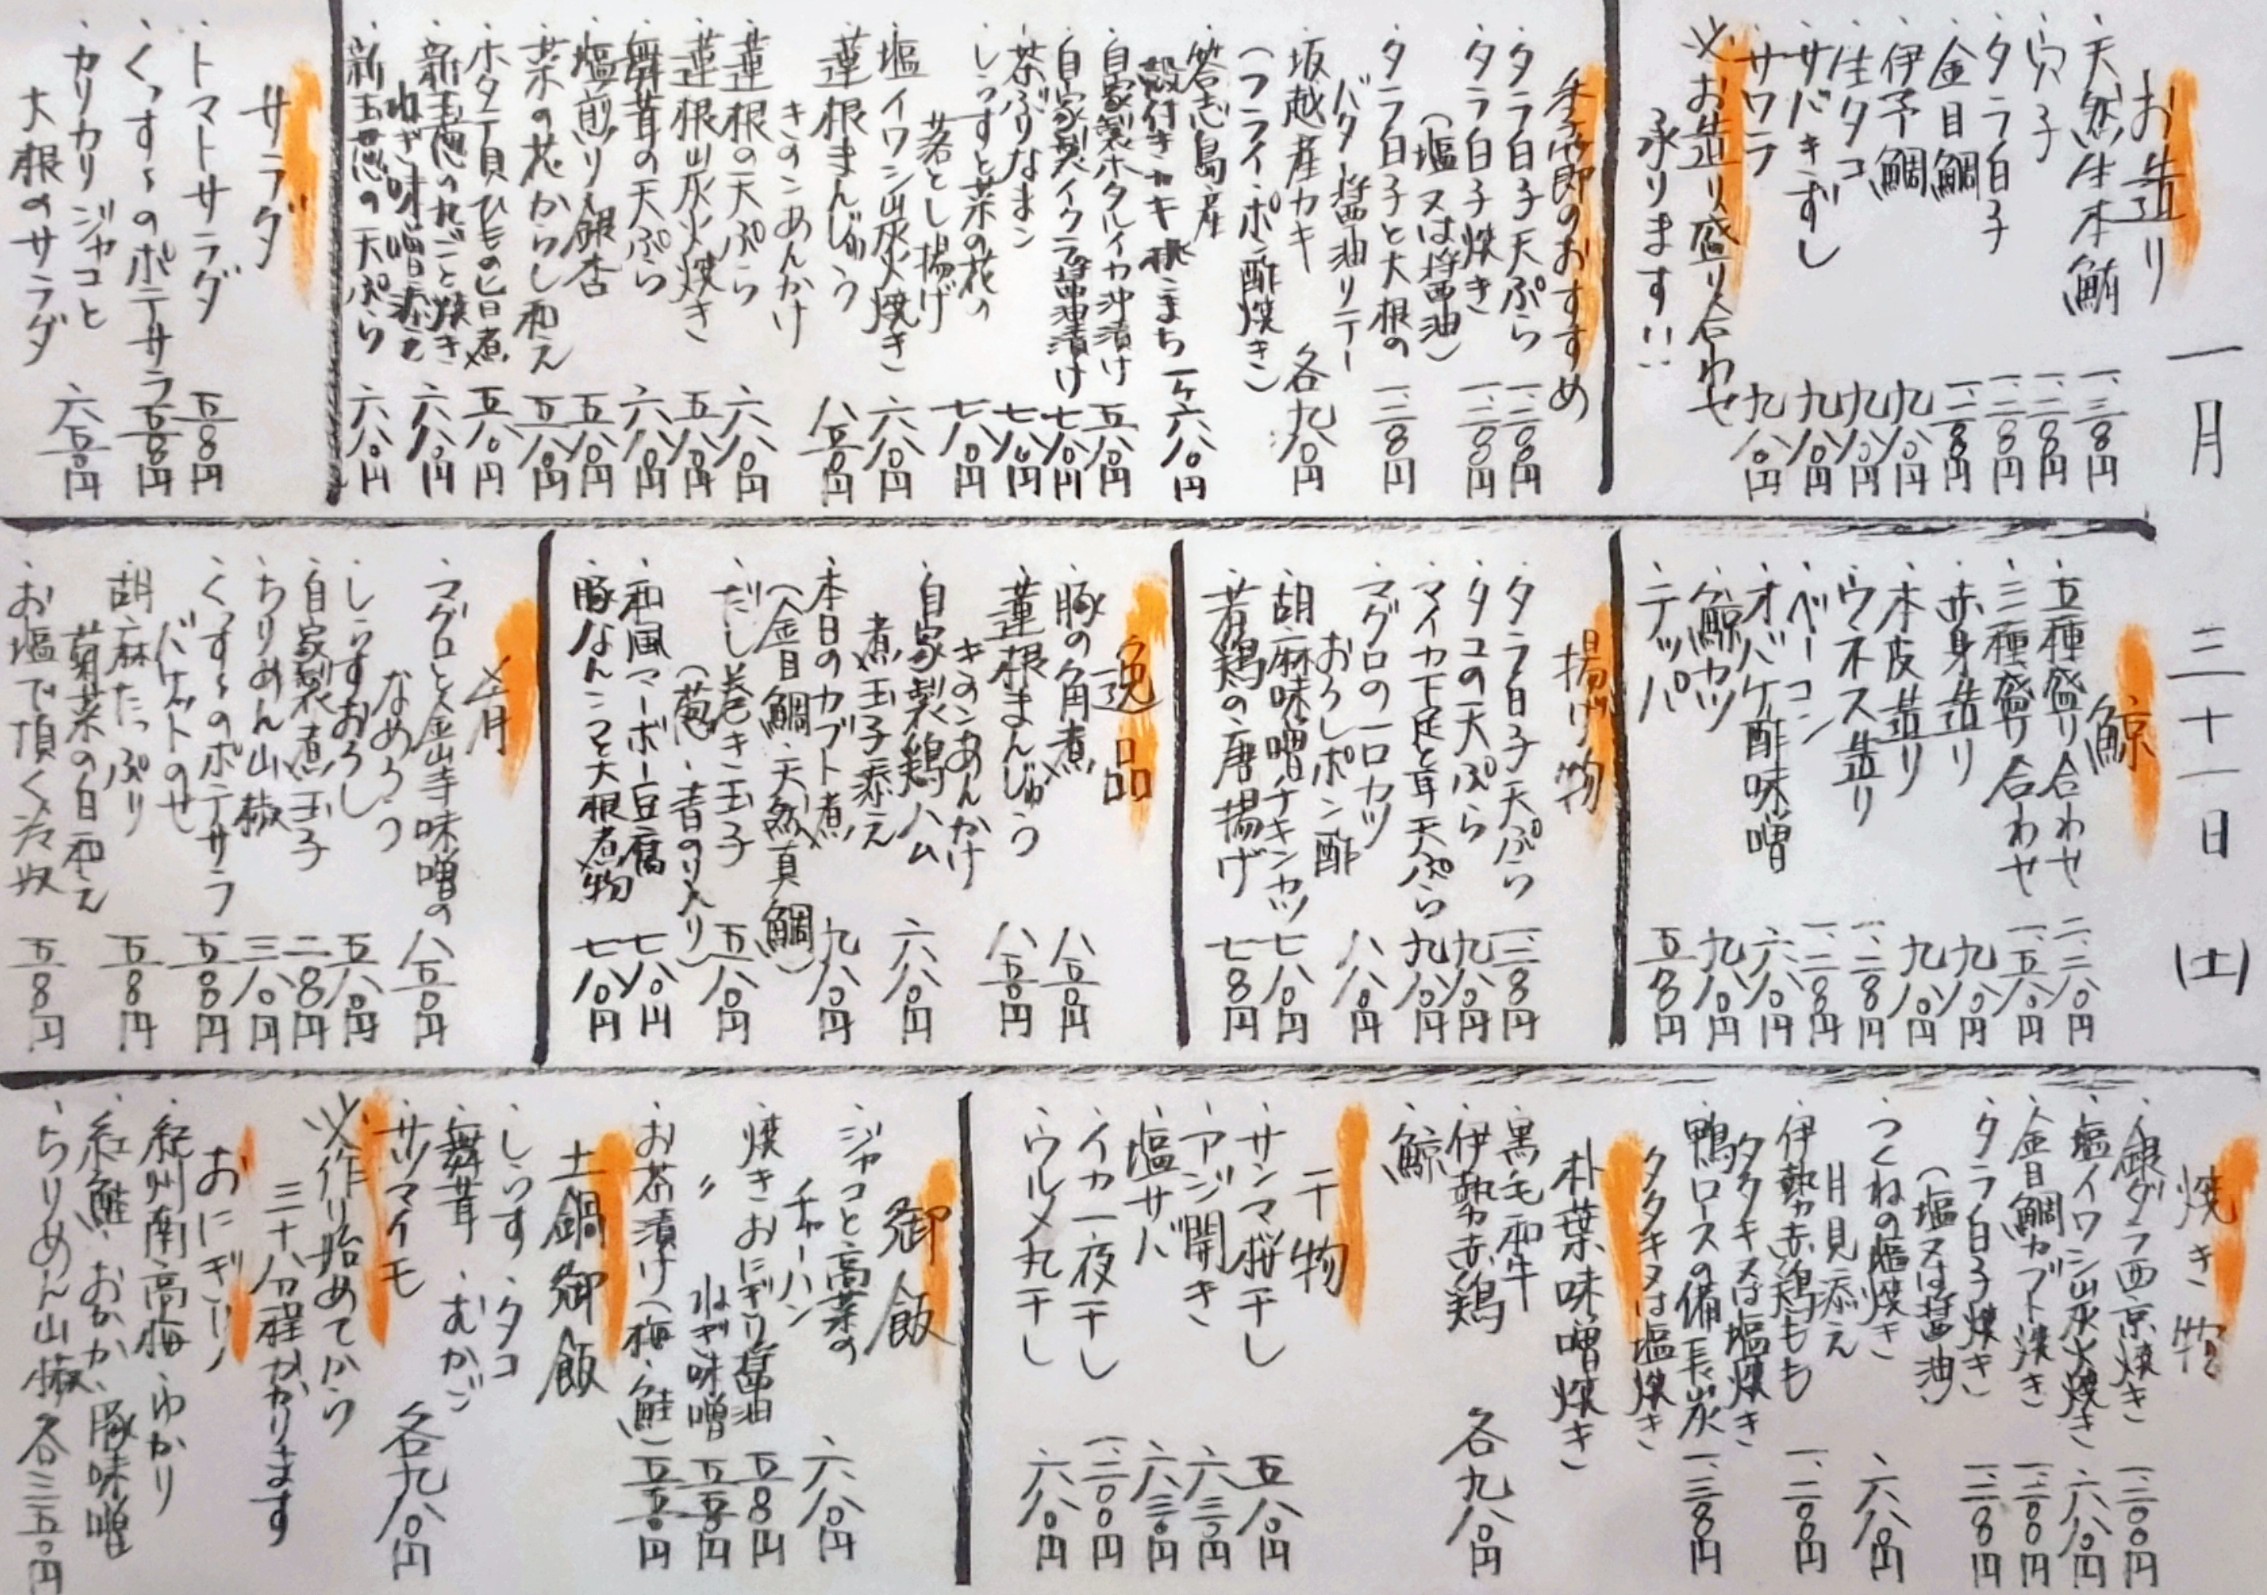 一月三十一日(土)
お造り
・天然生本鮪 一、三八〇円
・穴子 一、二八〇円
・タラ白子 一、二八〇円
・金目鯛 一、二八〇円
・伊予鯛 九八〇円
・生タコ 九八〇円
・サバきずし 九八〇円
・サワラ 九八〇円
※お造り盛り合わせ
承ります!!
季節のおすすめ
・タラ白子天ぷら
・タラ白子焼き
(塩又は醤油)
・タラ白子と大根の
バター醤油ソテー
・坂越産カキ 各九八〇円
(フライ・ポン酢・焼き)
・答志島産
殻付きカキ 桃こまち 一ヶ六八〇円
・自家製ホタルイカ沖漬け 五八〇円
・自家製イクラ醤油漬け 七八〇円
・茶ぶりなまこ 七八〇円
・しらすと菜の花の
落とし揚げ 七八〇円
・塩イワシ山灰火焼き 六八〇円
・蓮根まんじゅう
きのこあんかけ 八五〇円
・蓮根の天ぷら 六八〇円
・蓮根山灰火焼き 五八〇円
・舞茸の天ぷら 六八〇円
・塩煎り銀杏 五八〇円
・菜の花からし和え 五八〇円
・ホタテ貝ひもの旨煮 五八〇円
・新玉葱の丸ごと焼き
ねぎ味噌添え 六八〇円
・新玉葱の天ぷら 六八〇円
サラダ
・トマトサラダ 五八〇円
・くっすーのポテサラ 五八〇円
・カリカリジャコと
大根のサラダ 六五〇円
鯨
・五種盛り合わせ 二、二八〇円
・三種盛り合わせ 一、五八〇円
・赤身造り 九八〇円
・本皮造り 九八〇円
・ウネス造り 一、二八〇円
・ベーコン 一、二八〇円
・オバケ酢味噌 六八〇円
・鯨カツ 九八〇円
・テッパ 五八〇円
揚げ物
・タラ白子天ぷら 一、二八〇円
・タコの天ぷら 九八〇円
・マイカ下足と耳天ぷら 九八〇円
・マグロの一口カツ
おろしポン酢 八八〇円
・胡麻味噌チキンカツ 七八〇円
・若鶏の唐揚げ 七八〇円
逸品
・豚の角煮 八五〇円
・蓮根まんじゅう
きのこあんかけ 八五〇円
・自家製鶏ハム
煮玉子添え 六八〇円
・本日のカブト煮 九八〇円
(金目鯛・天然真鯛)
・だし巻き玉子 五八〇円
(葱・青のり入り)
・和風マーボー豆腐 七八〇円
・豚なんこつと大根煮物 七八〇円
・マグロと金山寺味噌の
なめろう 八五〇円
・しらすおろし 五八〇円
・自家製煮玉子 二八〇円
・ちりめん山椒 三八〇円
・くっすーのポテサラ
バゲットのせ 五八〇円
・胡麻たっぷり
菊菜の白和え 五八〇円
・お塩で頂く冷奴 五八〇円
焼き物
・銀ダラ西京焼き 一、三〇〇円
・塩イワシ山灰火焼き 六八〇円
・金目鯛カブト焼き
・タラ白子焼き
(塩又は醤油)
・つくねの塩焼き
月見添え 六八〇円
・伊勢赤鶏もも
タタキ又は塩焼き 一、二八〇円
・鴨ロースの備長炭
タタキ又は塩焼き 一、三八〇円
朴葉味噌焼き
・黒毛和牛
・伊勢赤鶏 各九八〇円
・鯨
干物
・サンマ桜干し 五八〇円
・アジ開き 六三〇円
・塩サバ 六三〇円
・イカ一夜干し
・ウルメ丸干し 六八〇円
御飯
・ジャコと高菜の
チャーハン 六八〇円
・焼きおにぎり醤油 五八〇円
・〃 ねぎ味噌 五五〇円
・お茶漬け(梅・鮭) 五五〇円
土鍋御飯
・しらす・タコ
・舞茸・むかご
・サツマイモ 各九八〇円
※作り始めてから
三十分程かかります
おにぎり
・紀州南高梅・ゆかり
・紅鮭・おかか・豚味噌
・ちりめん山椒 各三五〇円